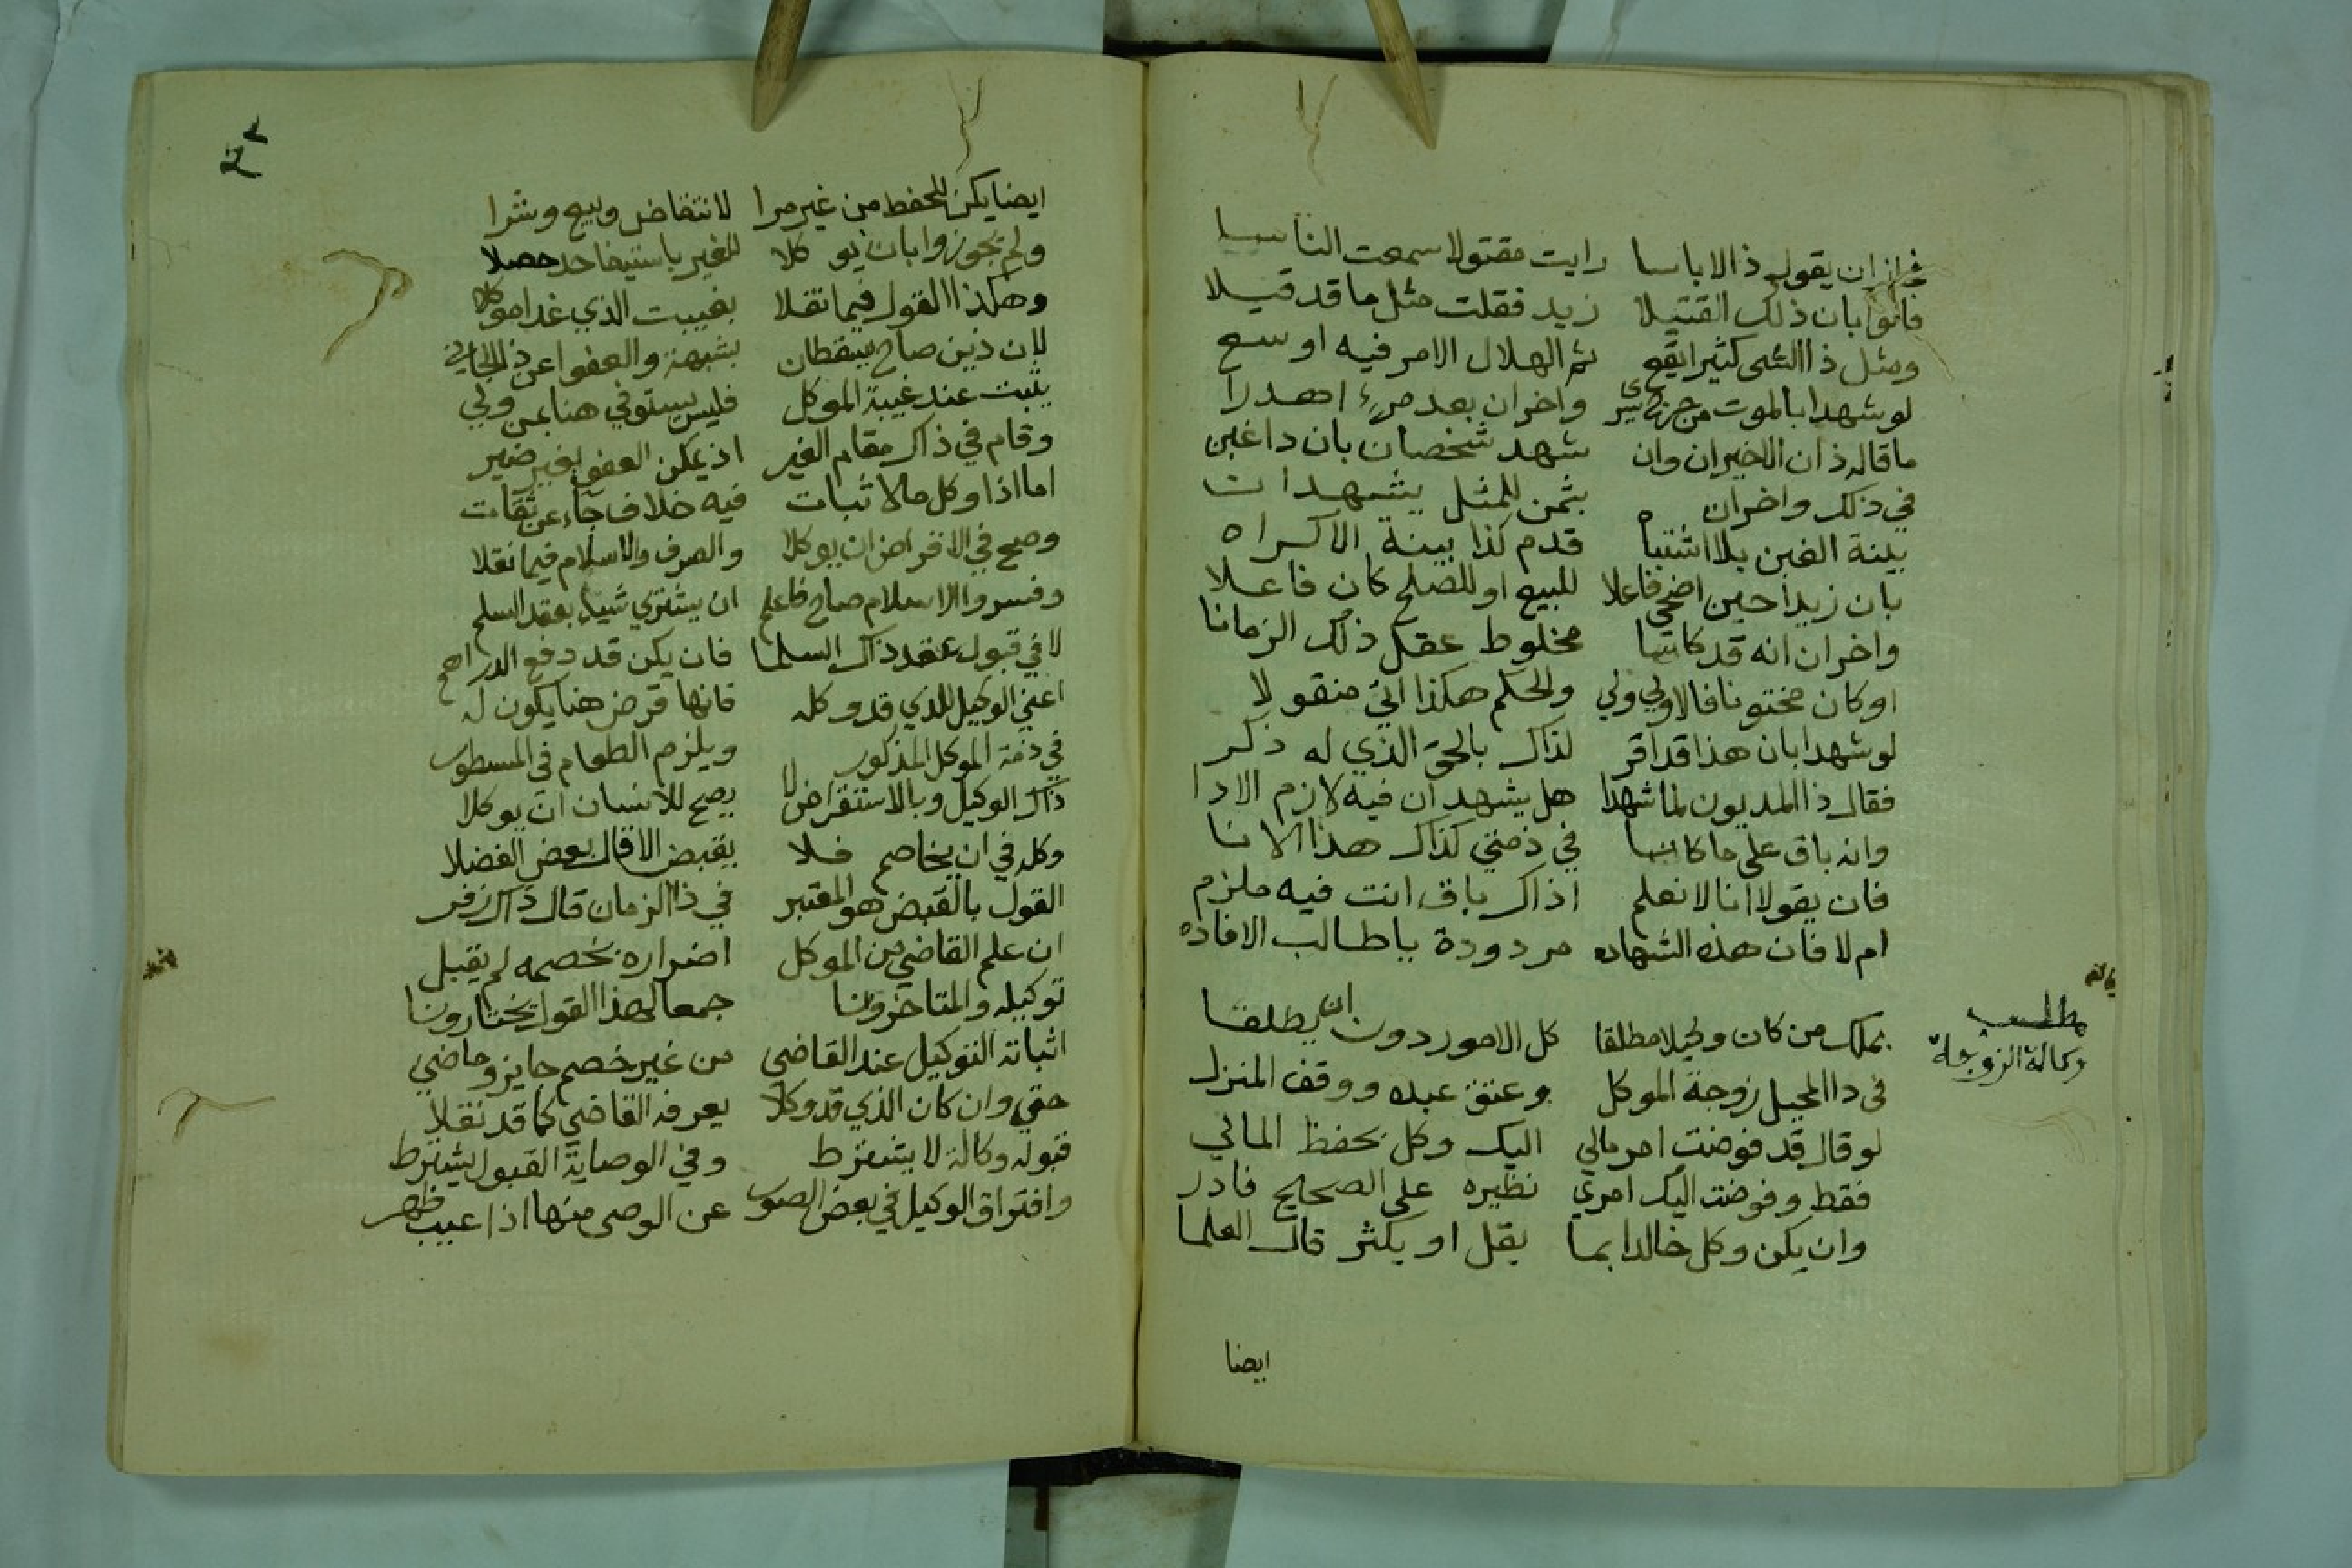 ان يقول ذا لا باسا رايت مقتولا سمعت الناسا
بان ذلك القتيلا زيد فقلت مثل ما قد قيلا
ومثل ذا الشى كثيرا يقع ثم الهلال الامر فيه اوسع
لو شهدا بالموت من جرح يرى واخران بعد مرء اهدرا
ما قاله ذان الاخيران وان شهد شخصان بان ذا غبن
في ذلك واخران بثمن المثل يشهدان
بينة الغبن بلا اشتباه قدم كذا بينة الاكراه
بان زيدا حين اضحى فاعلا للبيع او للصلح كان فاعلا
واخران انه قد كانا مخلوط عقل ذلك الزمانا
او كان مختونا فالاولى ولي والحكم هكذا اتى منقولا
لو شهدا بان هذا قد اقر لذاك بالحق الذي له ذكر
فقال ذا المديون لما شهدا هل يشهدان فيه لازم الادا
وانه باق على ما كانا في ذمتي كذاك هذا الانا
فان يقولا اننا لا نعلم اذاك باق انت فيه ملزم
ام لا فان هذه الشهاده مردودة يا طالب الافاده
مطلب
وكالة الزوجة
يملك من كان وكيلا مطلقا كل الامور دون ان يطلقا
في ذا المحيل زوجة الموكل وعتق عبده ووقف المنزل
لو قال قد فوضت امر مالي اليك وكل بحفظ المالي
فقط وفوضت اليك امري نظيره على الصحيح فادر
وان يكن وكل خالدا بما يقل او يكثر قال العلما
ايضا
ايضا يكن للحفظ من غير مرا لا نتقاض وبيع وشرا
ولم يجوزوا بان يوكلا للغير باستيفا حد حصلا
وهكذا القول فيما نقلا بغيبت الذي غدا موكلا
لان ذين صاح يسقطان بشبهة والعفو اعن ذا الجاني
يثبت عند غيبة الموكل فليس يستوفي هنا عن ولي
وقام في ذاك مقام الغير اذ يمكن العفو بغير ضير
اما اذا وكل مالا ثبات فيه خلاف جاء عن ثقات
وصح في الاقراض ان يوكلا والصرف والاسلام فيما نقلا
وفسروا الاسلام صاح فاعلم ان يشتري شيئا بعقد السلم
لا في قبول عقد ذاك السلما فان يكن قد دفع الدراهم
اعني الوكيل للذي قد وكله فانها قرض هنا يكون له
في ذمة الموكل المذكور ويلزم الطعام في المسطور
ذاك الوكيل وبالاستقراض لا يصح للانسان ان يوكلا
وكله في ان يخاصم فلا يقبض الا قال بعض الفضلا
القول بالقبض هو المعتبر في ذا الزمان قال ذاك زفر
ان علم القاضي من الموكل اضراره بخصمه لم يقبل
توكيله والمتاخرونا جمعا لهذا القول يختارونا
اثباته التوكيل عند القاضي من غير خصم جايز وماضي
حتى وان كان الذي قد وكلا يعرفه القاضي كما قد نقلا
قبوله وكالة لا يشترط وفي الوصاية القبول يشترط
وافتراق الوكيل في بعض الصور عن الوصى منها اذا عيب ظهر